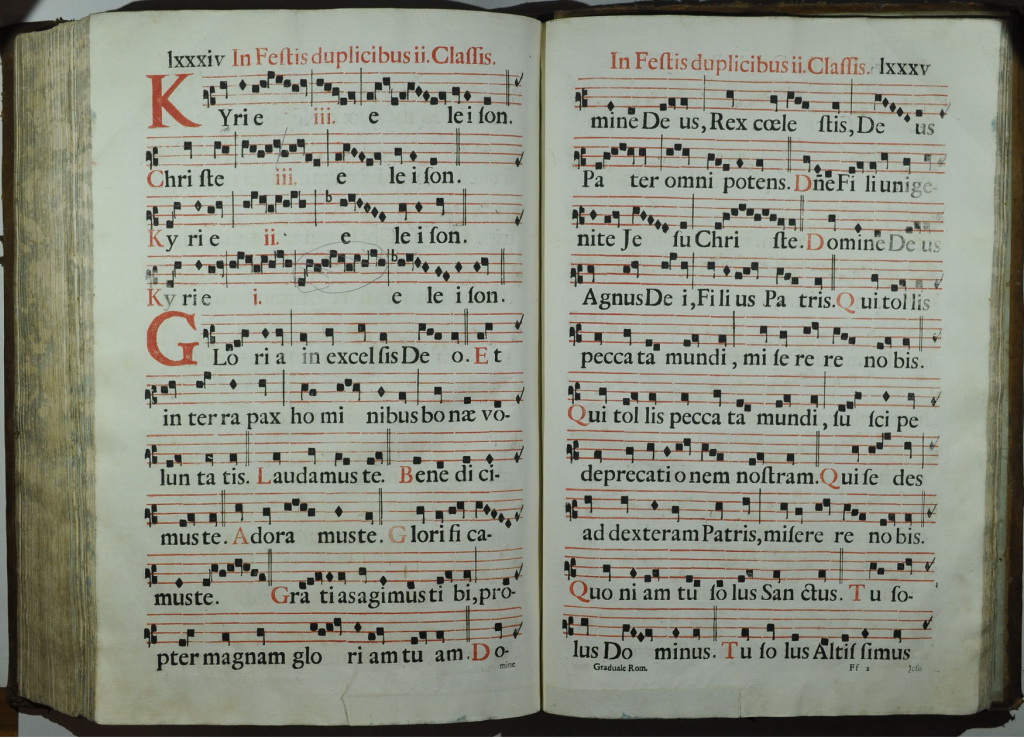 lxxxiv In Feſtis duplicibus ii. Claſſis.
KYri e iii. e le i ſon.
Chri ſte iii. e le i ſon.
Ky ri e ii. e le i ſon.
Ky ri e i. e le i ſon.
GLo ri a in excel ſis De o. E t
in ter ra pax ho mi nibus bo næ vo-
lun ta tis. Laudamus te. Bene di ci-
mus te. Adora mus te. Glori fi ca-
mus te. Gra ti as agimus ti bi, pro-
pter magnam glo ri am tu am. D o-
mine
In Feſtis duplicibus ii. Claſſis. lxxxv
mine De us, Rex cœle ſtis, De us
Pa ter omni potens. Dñe Fi li unige-
nite Je ſu Chri ſte. Domine De us
Agnus De i, Fi li us Pa tris. Qui tol lis
pecca ta mundi, mi ſe re re no bis.
Qui tol lis pecca ta mundi, ſu ſci pe
deprecati o nem noſtram. Qui ſe des
ad dexteram Patris, miſere re no bis.
Quo ni am tu ſo lus San ctus. T u ſo-
lus Do minus. Tu ſo lus Altiſ ſimus
Graduale Rom. Ff 2 Jeſu